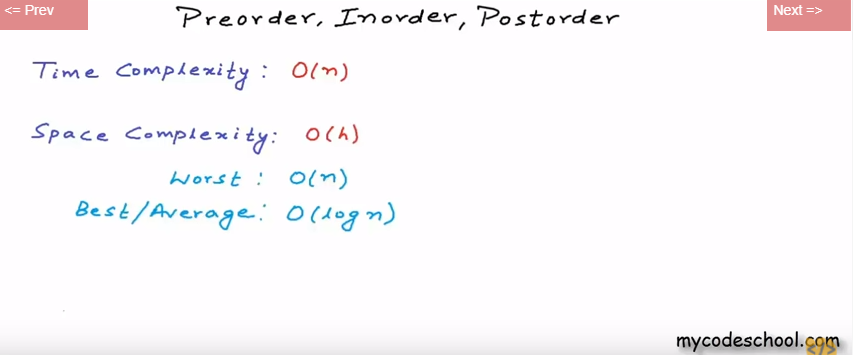 <= Prev
Preorder, Inorder, Postorder
Next =>
Time Complexity: O(n)
Space Complexity: O(h)
Worst : O(n)
Best/Average: O(log n)
mycodeschool.com